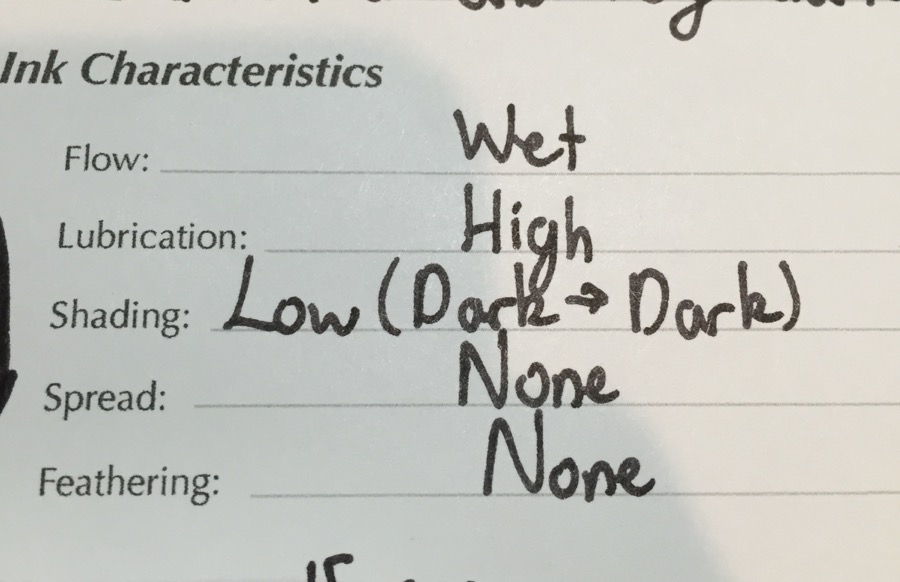 Ink Characteristics
Flow: Wet
Lubrication: High
Shading: Low (Dark → Dark)
Spread: None
Feathering: None